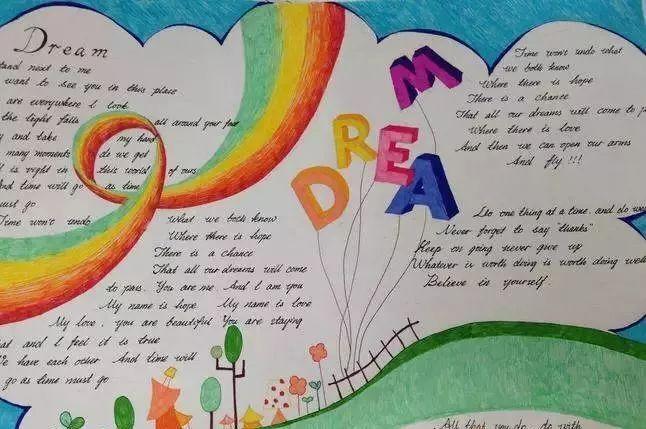 Dream
tand next to me
want to see you in this place
are everywhere I look
the light falls all around your face
y and take my hand
many moments do we get
l is right in this world of ours
nd time will go as time
ust go
Time won't undo
What we both know
Where there is hope
There is a chance
That all our dreams will come
to pass. You are me. And I am you
My name is hope My name is love
My love, you are beautiful You are staying
at and I feel it is true
We have each other And time will
go as time must go
DREAM
Time won't undo what
we both know
Where there is hope
There is a chance
That all our dreams will come to p
Where there is love
And then we can open our arms
And fly!!!
Do one thing at a time, and do we
Never forget to say "thanks"
Keep on going never give up
Whatever is worth doing is worth doing well
Believe in yourself.
All that you do, do with